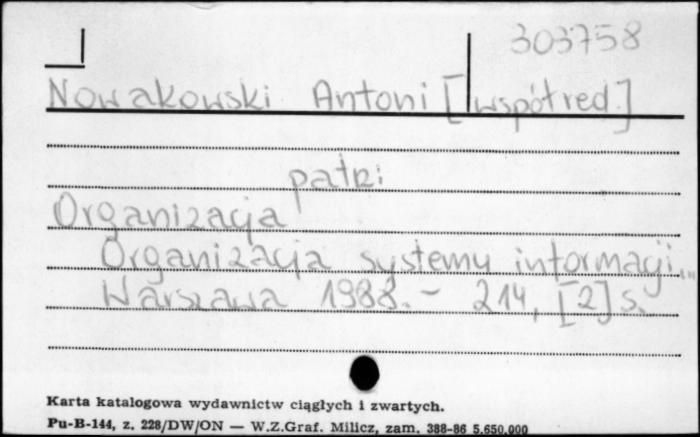 303758
Nowakowski Antoni [współred.]
patrz:
Organizacja
Organizacja systemu informacji...
Warszawa 1988. - 214, [2] s.
Karta katalogowa wydawnictw ciągłych i zwartych.
Pu-B-144, z. 228/DW/ON — W.Z.Graf. Milicz, zam. 388-86 5.650.000